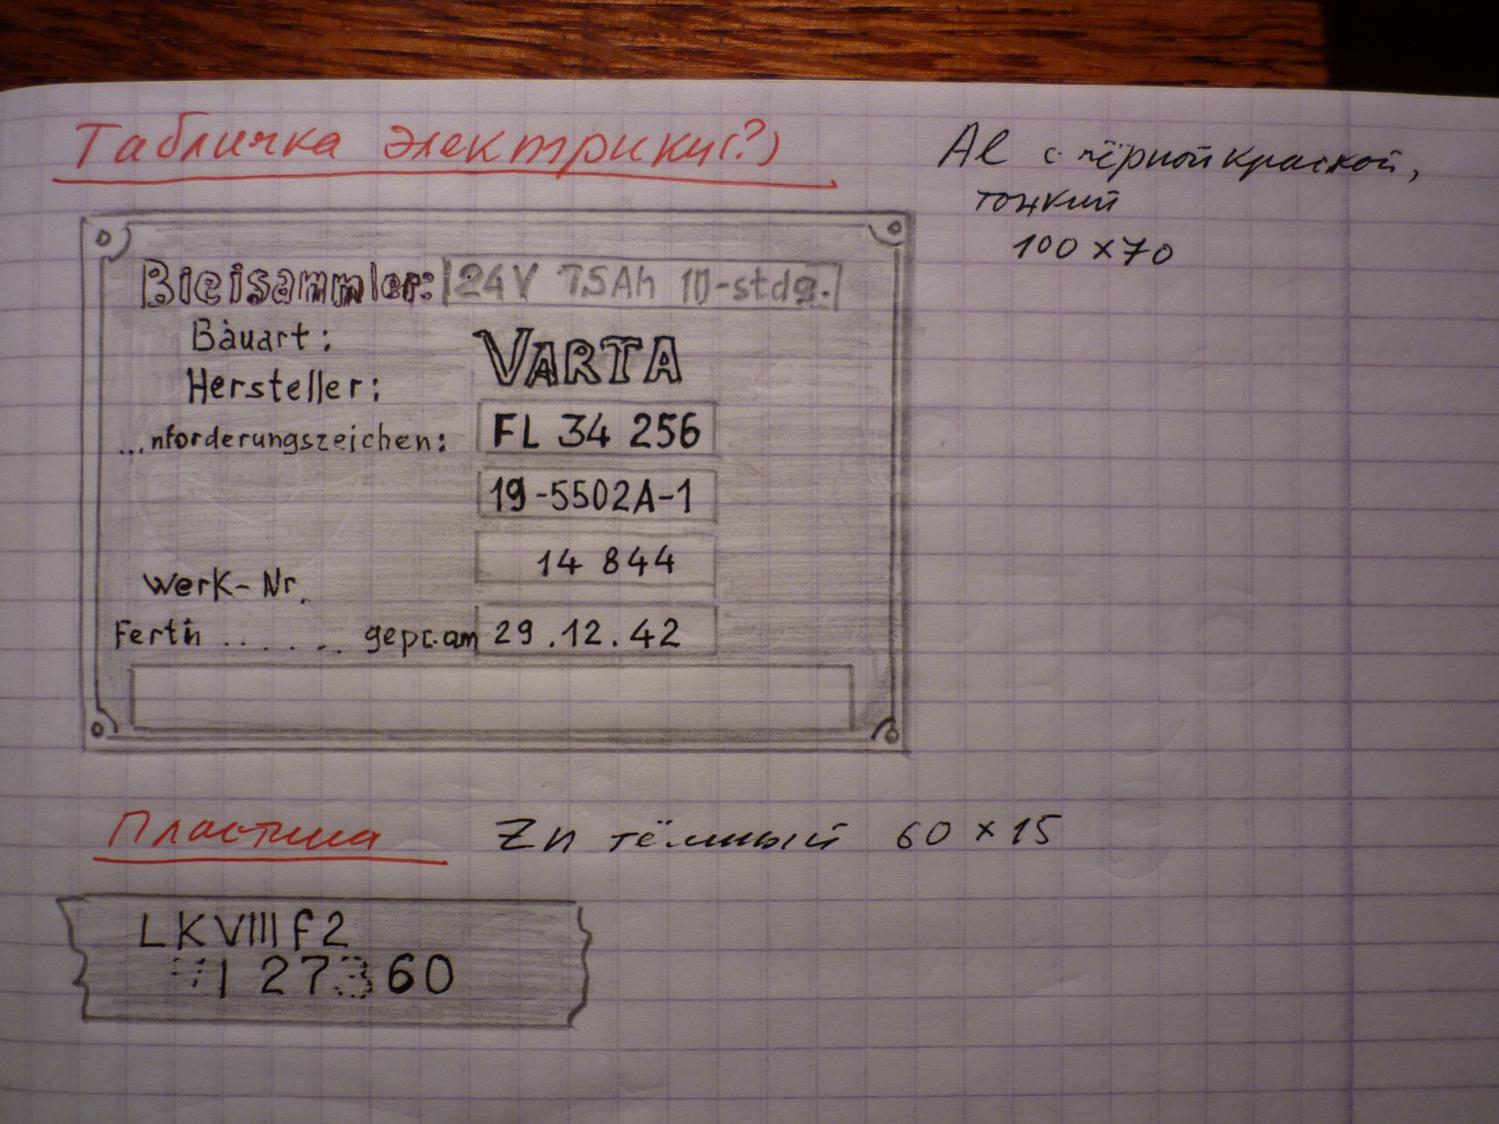 Табличка электрики(?)
Al с чёрной краской,
тонкий
100 x 70
Bleisammler: 24V 7.5Ah 10-stdg.
Bauart:
VARTA
Hersteller:
...nforderungszeichen: FL 34 256
19-5502A-1
14 844
Werk-Nr.
Fertin ...... gepr.am 29.12.42
Пластина Zn тёмный 60 x 15
LKVIII F2
1 27360